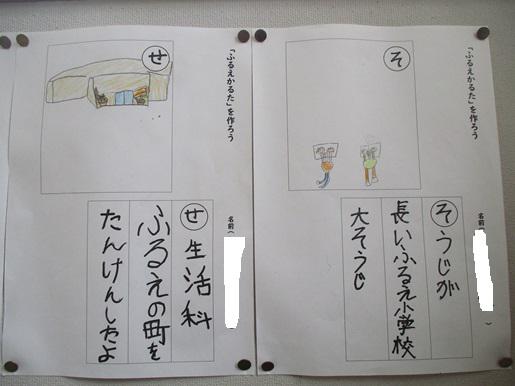 「ふるえかるた」を作ろう
そ
名前（　）
そうじが
長いふるえ小学校
大そうじ
「ふるえかるた」を作ろう
せ
名前（
せ生活科
ふるえの町を
たんけんしたよ